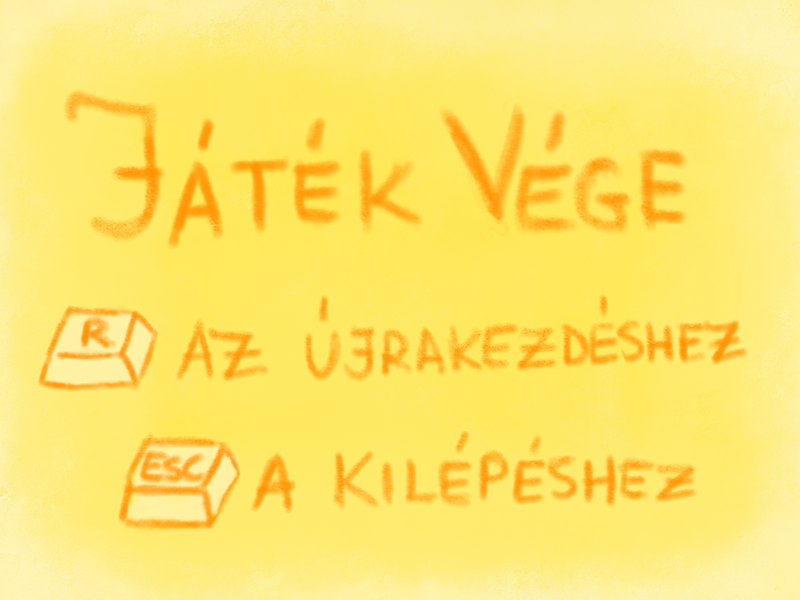 JÁTÉK VÉGE
R AZ ÚJRAKEZDÉSHEZ
ESC A KILÉPÉSHEZ